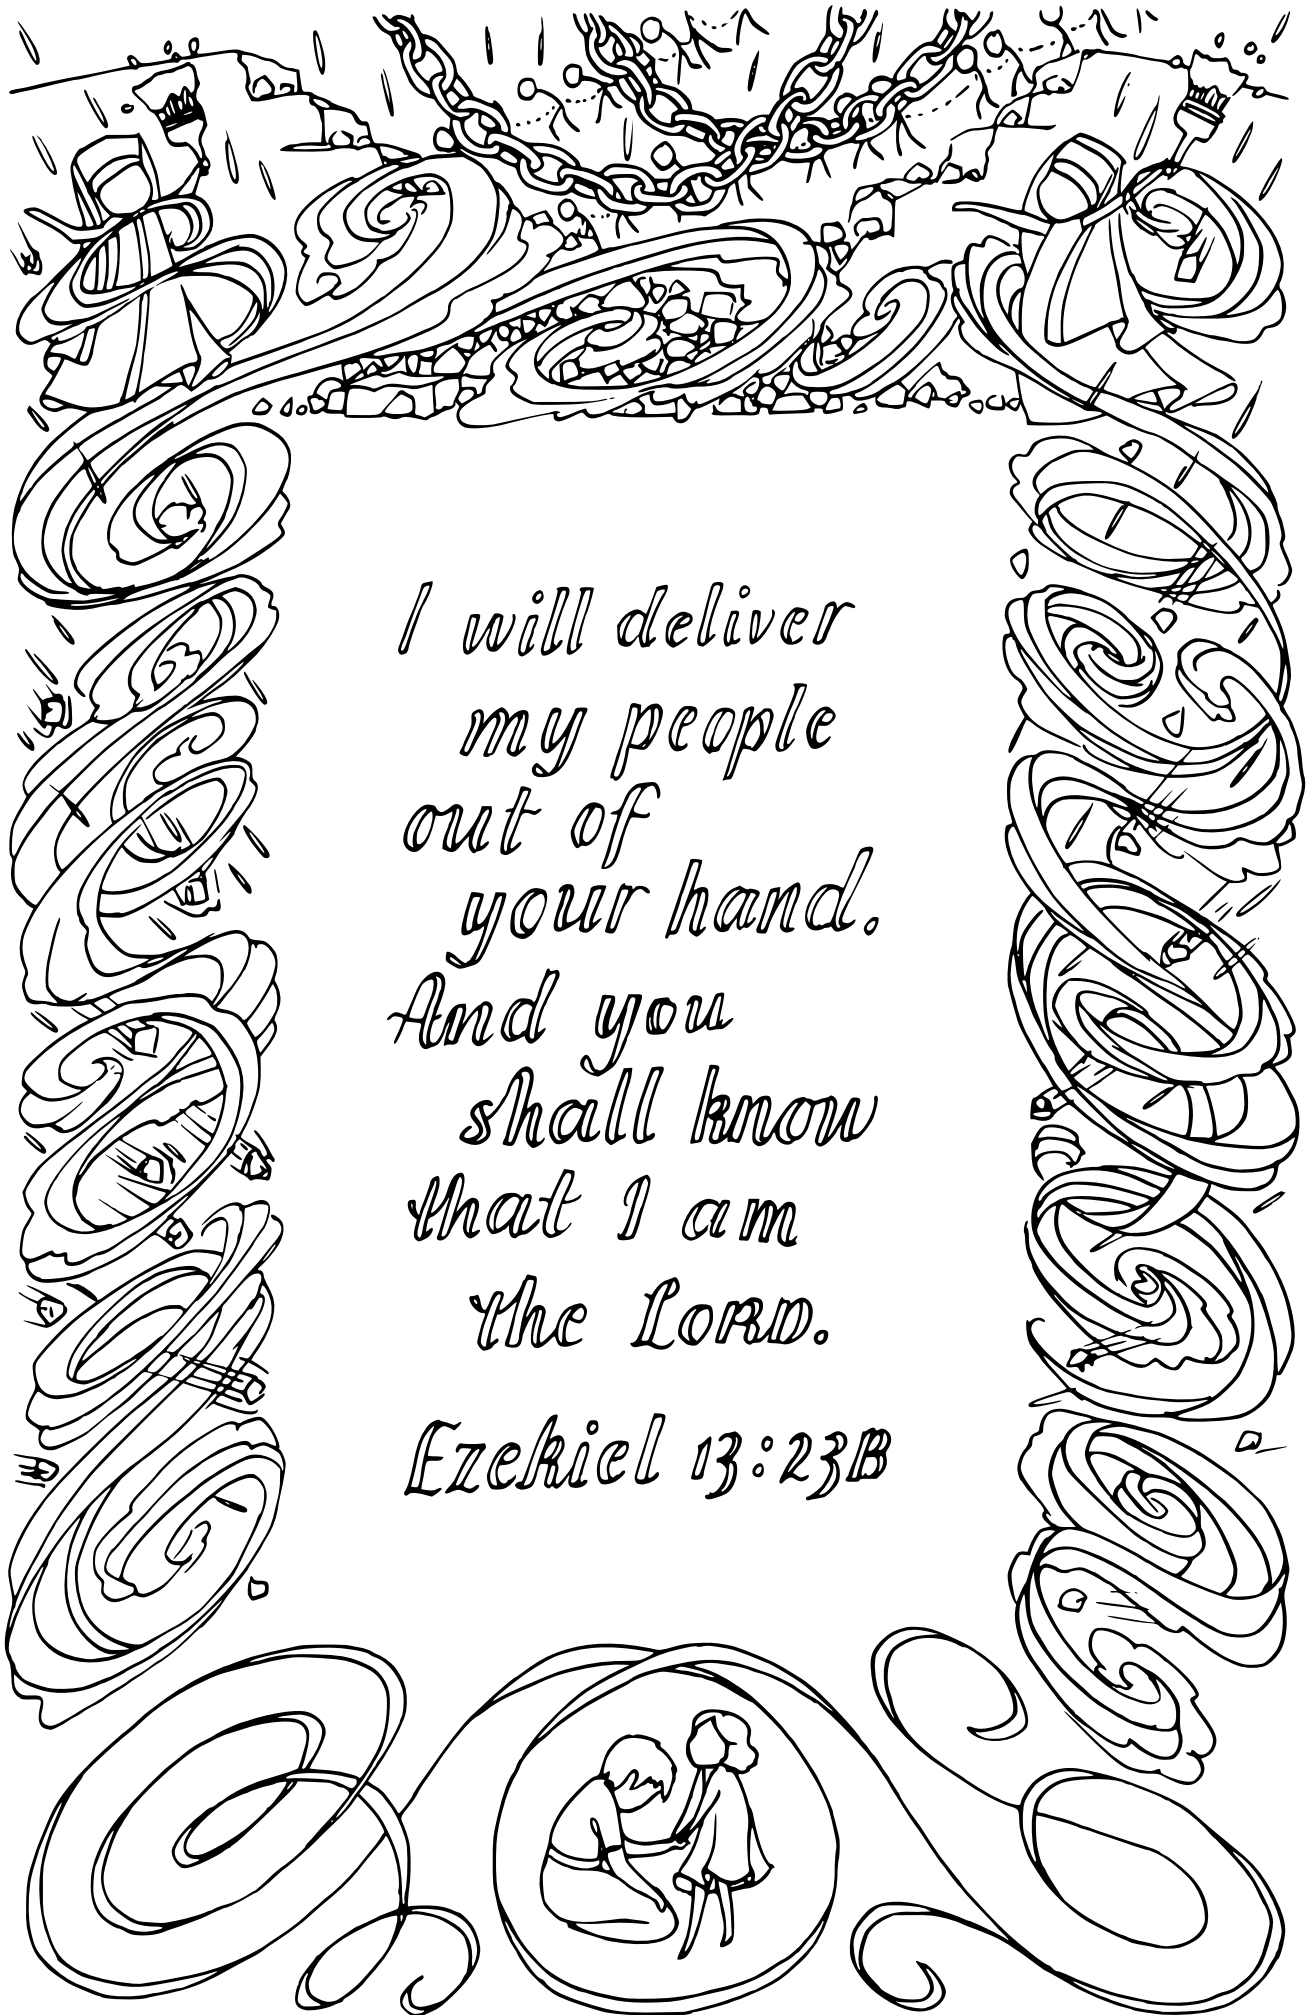 I will deliver
my people
out of
your hand.
And you
shall know
that I am
the LORD.
Ezekiel 13:23B